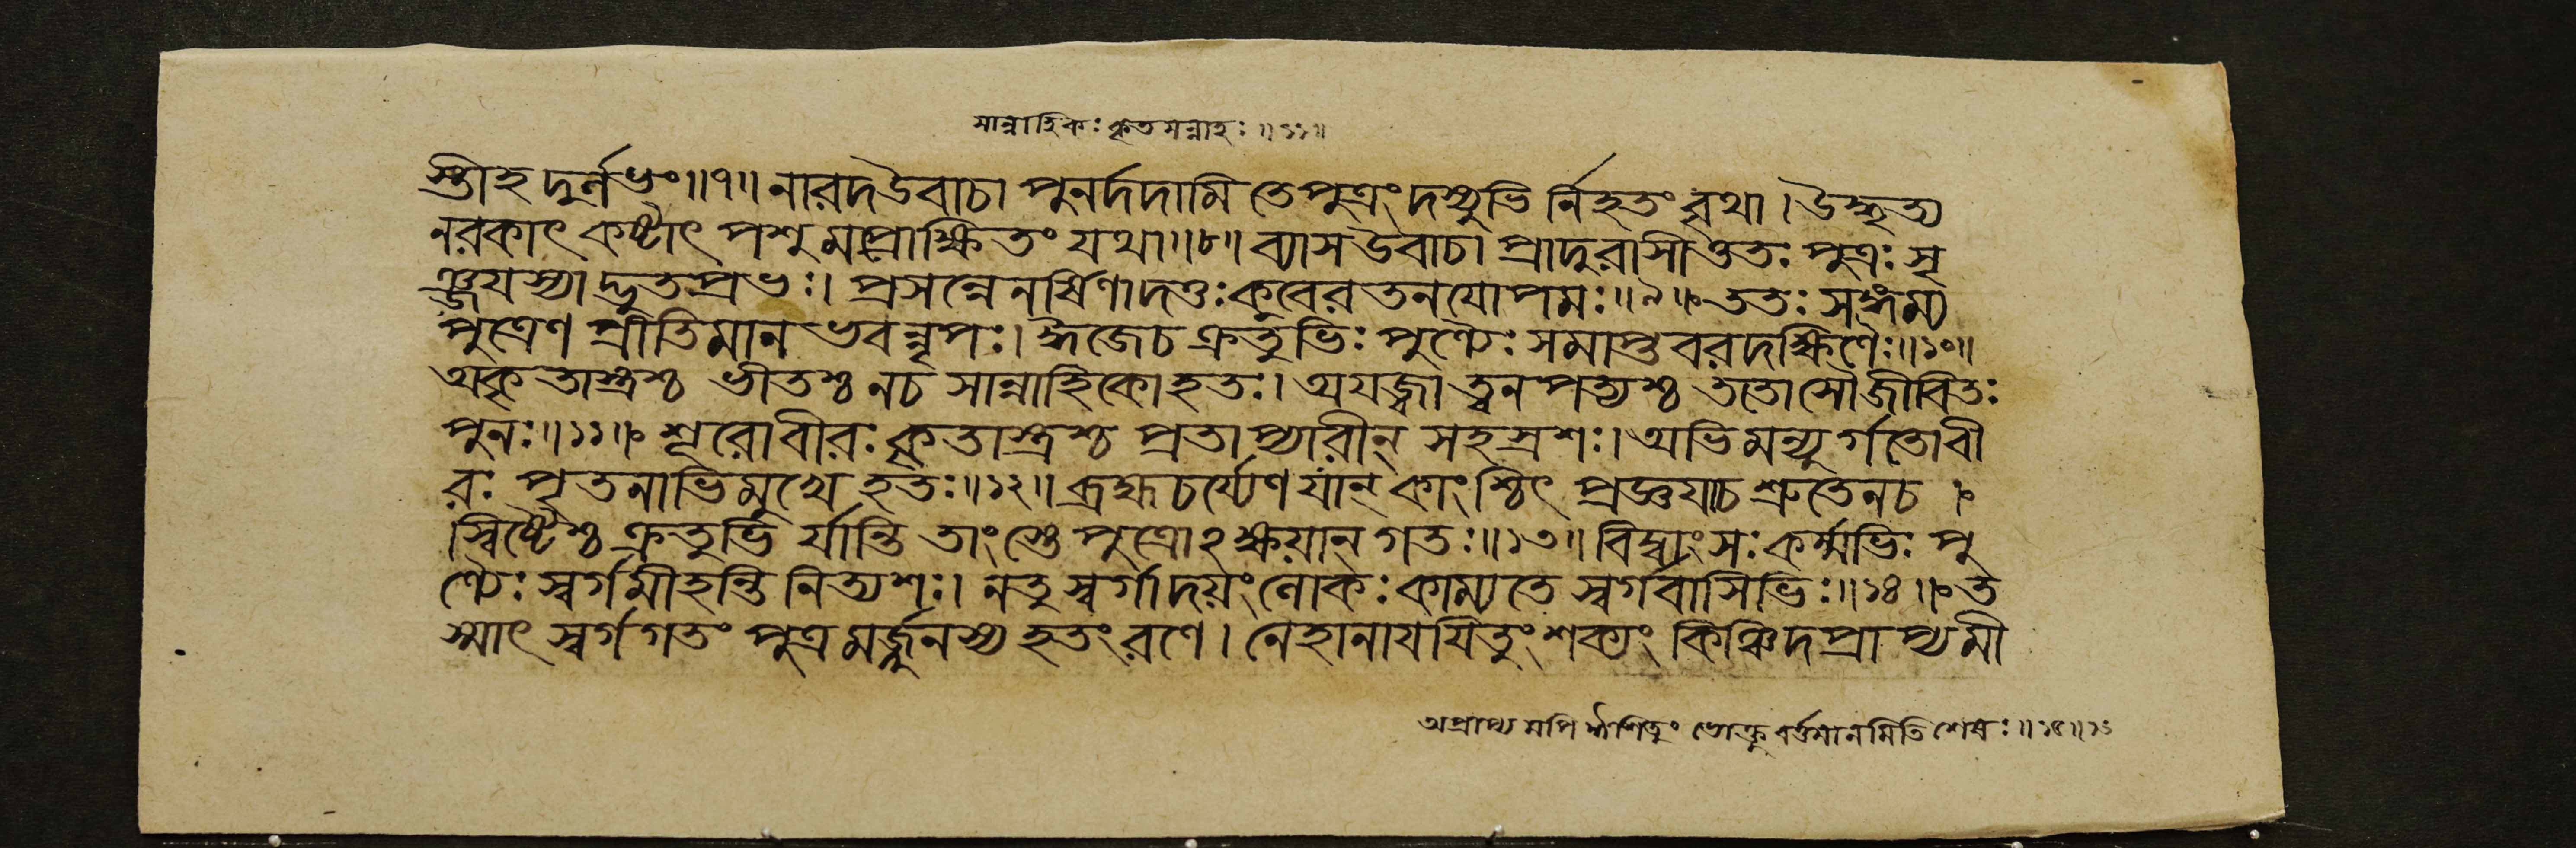 সান্নাহিকঃ কৃতসন্নাহঃ ॥১১॥
স্তীহ দুর্ল্লভং॥৭॥ নারদ উবাচ। পুনর্দদামি তে পুত্রং দস্যুভির্নিহতং বৃথা। উদ্ধৃত্য
নরকাৎ কষ্টাৎ পশুমপ্রোক্ষিতং যথা॥৮॥ ব্যাস উবাচ। প্রাদুরাসীত্ততঃ পুত্রঃ সৃ
ঞ্জয়স্যাদ্ভুতপ্রভঃ। প্রসন্নেনর্ষিণা দত্তঃ কুবেরতনযোপমঃ॥৯॥ ততঃ সঙ্গম্য
পুত্রেণ প্রীতিমানভবন্নৃপঃ। ঈজে চ ক্রতুভিঃ পুণ্যৈঃ সমাপ্তবরদক্ষিণৈঃ॥১০॥
অকৃতাস্ত্রশ্চ ভীতশ্চ নচ সান্নাহিকো হতঃ। অযজ্বা ত্বনপত্যশ্চ ততো সৌ জীবিতঃ
পুনঃ॥১১॥ শূরো বীরঃ কৃতাস্ত্রশ্চ প্রতাপ্যারীন্ সহস্রশঃ। অভিমন্যুর্গতো বী
রঃ পৃতনাভিমুখে হতঃ॥১২॥ ব্রহ্মচর্য্যেণ যান্ কাংশ্চিৎ প্রজ্ঞযা চ শ্রুতেন চ
স্বিষ্টৈশ্চ ক্রতুভির্যান্তি তাংস্তে পুত্রোঽক্ষয়ান্ গতঃ॥১৩॥ বিদ্বাংসঃ কর্ম্মভিঃ পু
ণ্যৈঃ স্বর্গমীহন্তি নিত্যশঃ। নতু স্বর্গাদয়ং লোকঃ কাম্যতে স্বর্গবাসিভিঃ॥১৪॥ ত
স্মাৎ স্বর্গগতং পুত্রমর্জ্জুনস্য হতং রণে। নেহানাযযিতুং শক্যং কিঞ্চিদপ্রাপ্যমী
অপ্রাপ্যমপি ঈশিতুং ভোক্তু বর্ত্তমানমিতি শেষঃ॥১৫॥